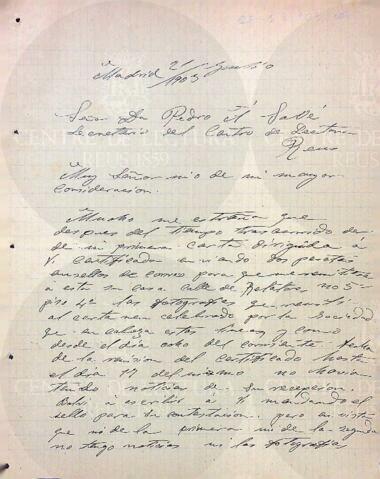 Madrid 21 Agosto
1903
Señor Dn Pedro Salvé
Secretario del Centro de Lectura
Reus
Muy Señor mio de mi mayor
consideracion.
Mucho me estraña que
despues del tiempo trascurrido des
de mi primera carta dirigida á
V. certificada enviando dos pesetas
en sellos de correo para que me remitiera
á esta su casa calle de Relatores nº 5
piso 4º las fotografias que remiti
al certamen celebrado por la Sociedad
que encabeza estas lineas y como
desde el dia ocho del corriente fecha
de la remision del certificado hasta
el dia 17 del mismo no havia
tenido noticias de su recepcion
Bolvi á escribir á V. mandando el
sello para su contestacion. pero en vista
que ni de la primera ni de la segunda
no tengo noticias ni las fotografias